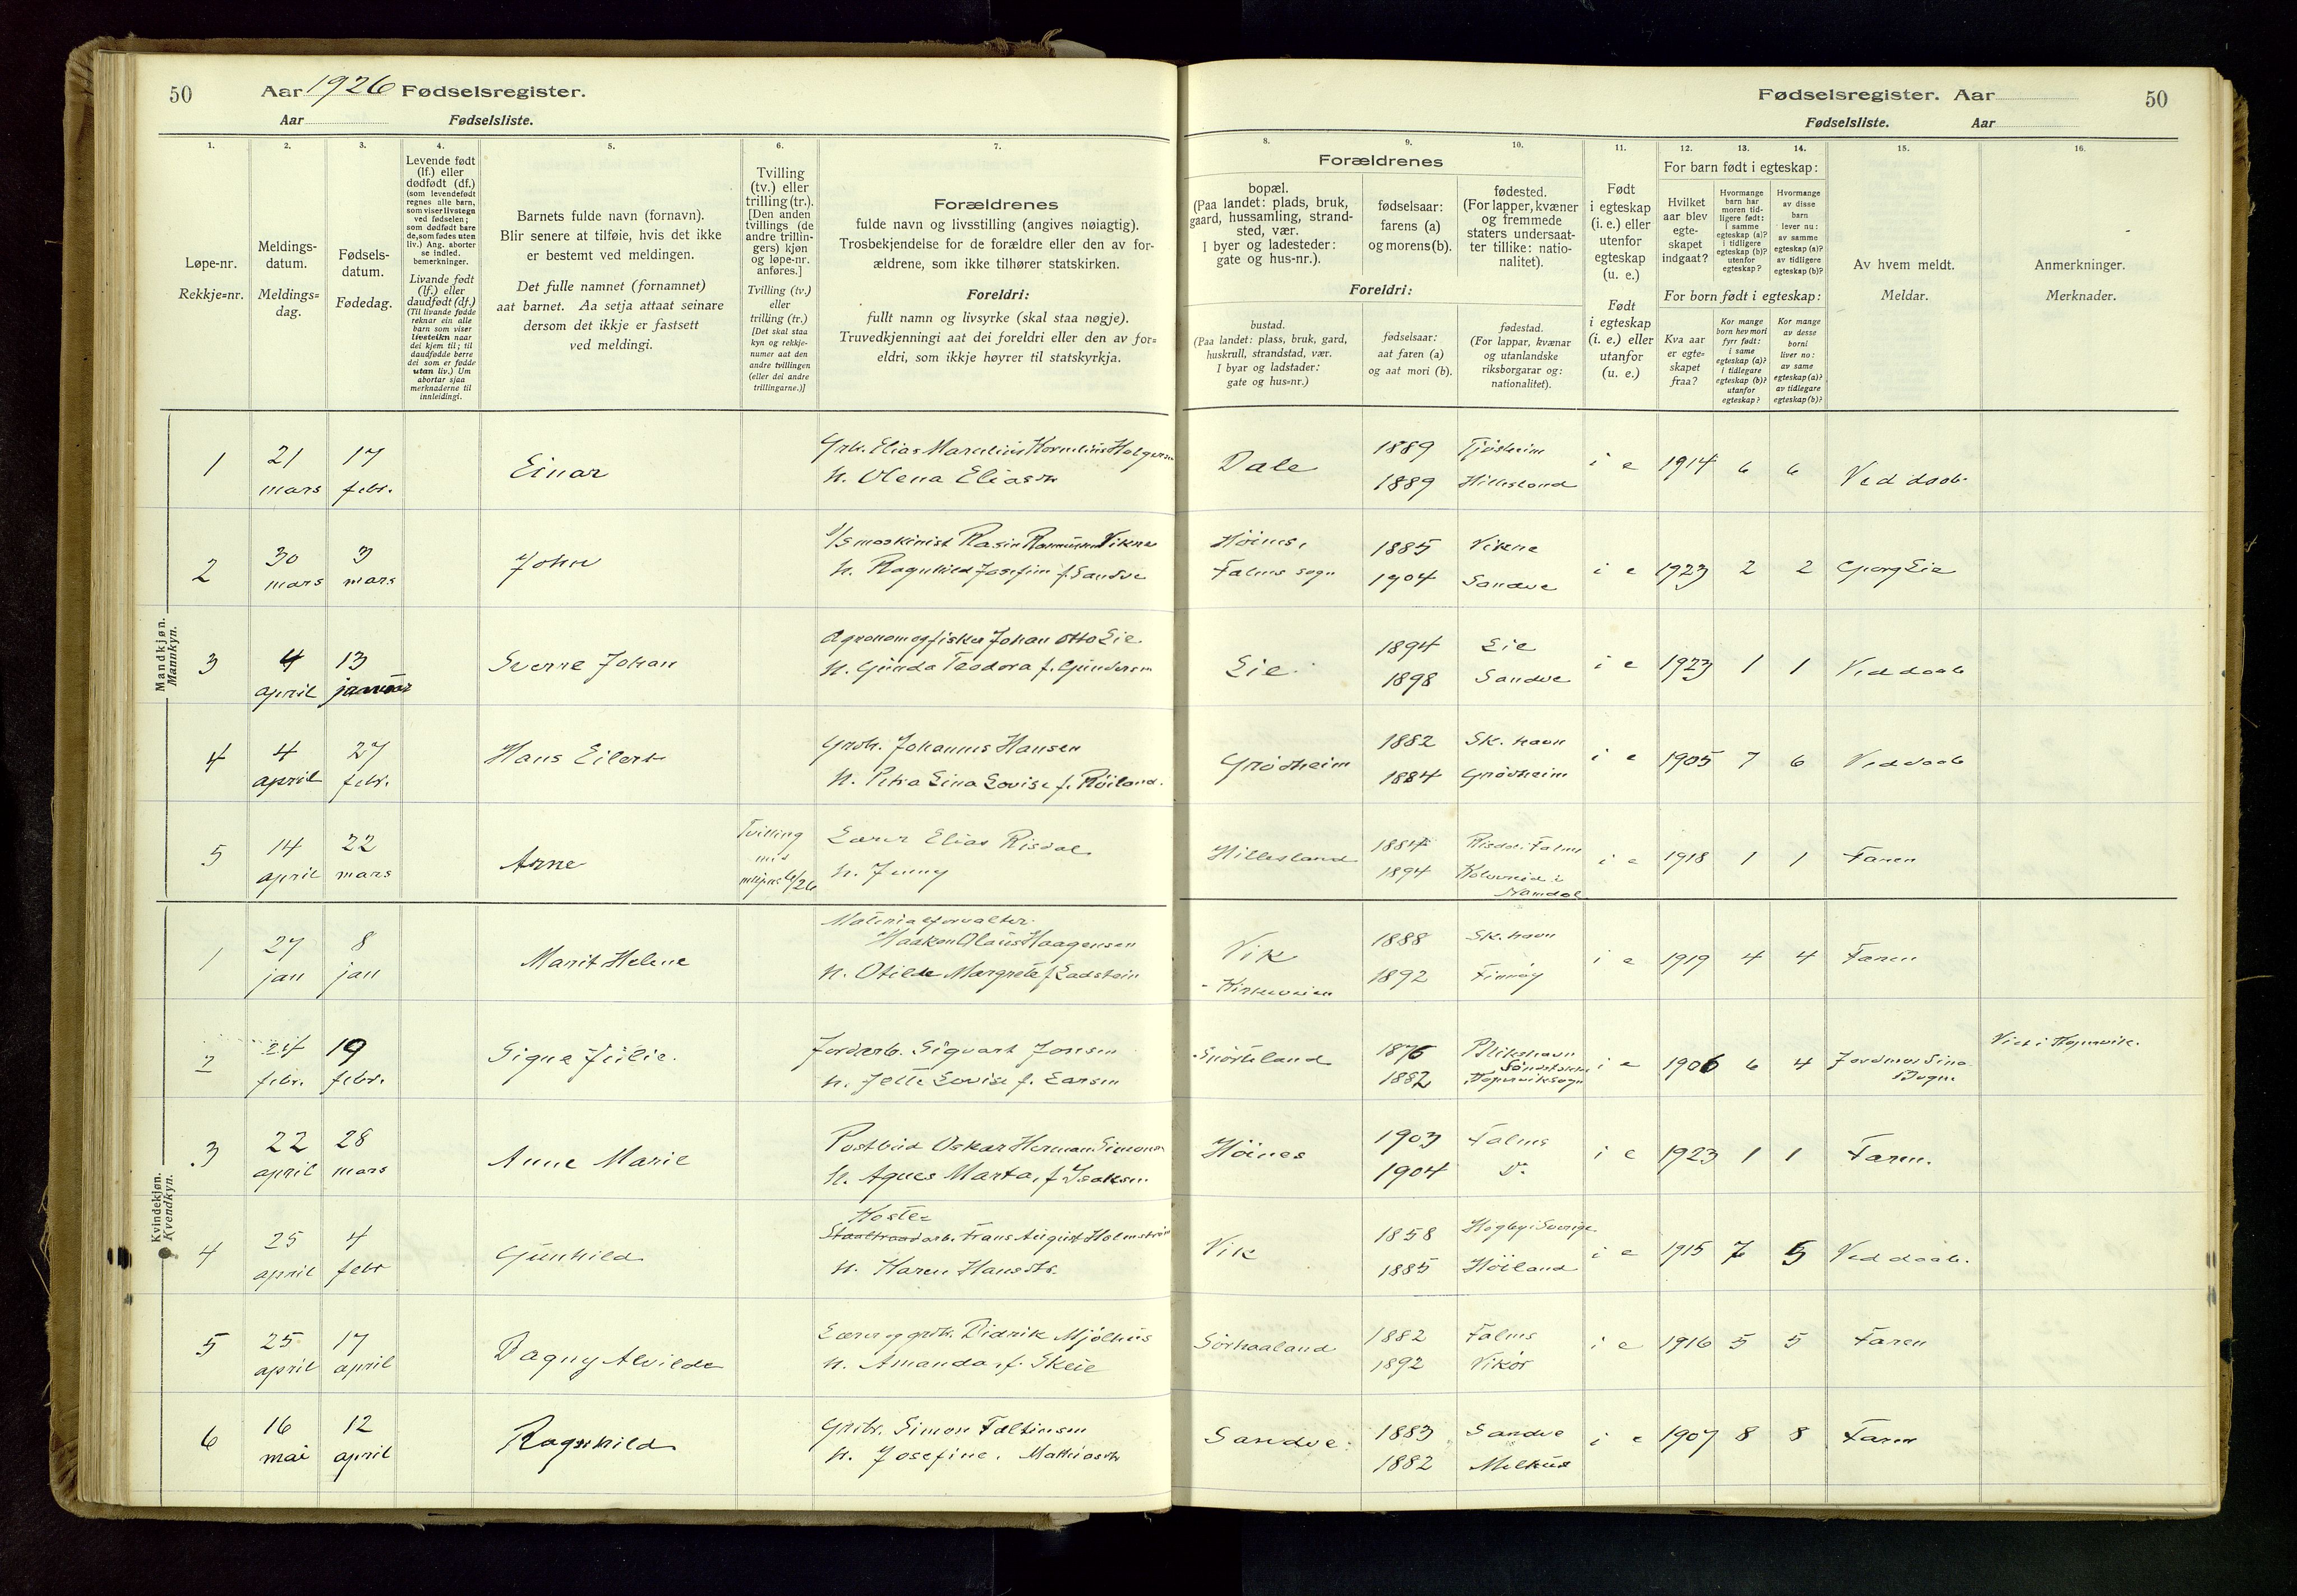 50
Aar 1926 Fødselsregister.
Aar Fødselsliste.
Fødselsregister. Aar
50
Fødselsliste. Aar
1.
Løpe-nr.
Rekkje=nr.
2.
Meldings-
datum.
Meldings=
dag.
3.
Fødsels-
datum.
Fødedag.
4.
Levende født
(lf.) eller
dødfødt (df.)
(som levendefødt
regnes alle barn,
som viser livstegn
ved fødselen;
som dødfødt bare
de, som fødes uten
liv.) Ang. aborter
se indled.
bemerkninger.
Livande født
(lf.) eller
daudfødt (df.)
(Til livande fødde
reknar ein alle
barn som viser
livsteikn naar
dei kjem til; til
daudfødde berre
dei som er fødde
utan liv.) Um
abortar sjaa
merknaderne til
innleidingi.
5.
Barnets fulde navn (fornavn).
Blir senere at tilføie, hvis det ikke
er bestemt ved meldingen.
Det fulle namnet (fornamnet)
aat barnet. Aa setja attaat seinare
dersom det ikkje er fastsett
ved meldingi.
6.
Tvilling
(tv.) eller
trilling (tr.).
[Den anden
tvillings (de
andre trillin-
gers) kjøn
og løpe-nr.
anføres.]
Tvilling (tv.)
eller
trilling (tr.)
[Det skal staa
kyn og rekkje-
numer aat den
andre tvillingen
(eller dei andre
trillingarne.)]
7.
Forældrenes
fulde navn og livsstilling (angives nøiagtig).
Trosbekjendelse for de forældre eller den av for-
ældrene, som ikke tilhører statskirken.
Foreldri:
fullt namn og livsyrke (skal staa nøgje).
Truvedkjenningi aat dei foreldri eller den av for=
eldri, som ikkje høyrer til statskyrkja.
8. 9. 10.
Forældrenes
bopæl.
(Paa landet: plads, bruk,
gaard, hussamling, strand-
sted, vær.
I byer og ladesteder:
gate og hus-nr.).
fødselsaar:
farens (a)
og morens (b).
fødested.
(For lapper, kvæner
og fremmede
staters undersaat-
ter tillike: natio-
nalitet).
Foreldri:
bustad.
(Paa landet: plass, bruk, gard,
huskrull, strandstad, vær.
I byar og ladstader:
gate og hus=nr.)
fødselsaar:
aat faren (a)
og aat mori (b).
fødestad.
(For lappar, kvænar
og utanlandske
riksborgarar og:
nationalitet).
11.
Født
i egteskap
(i. e.) eller
utenfor
egteskap
(u. e.)
Født
i egteskap
(i. e.) eller
utanfor
(u. e.)
12. 13. 14.
For barn født i egteskap:
Hvilket
aar blev
egte-
skapet
indgaat?
Hvormange
barn har
moren tid-
ligere født:
i samme
egteskap (a)?
i tidligere
egteskap (b)?
utenfor
egteskap?
Hvormange
av disse
barn
lever nu:
av samme
egteskap (a)?
av tidligere
egteskap (b)?
For born født i egteskap:
Kva aar
er egte=
skapet
fraa?
Kor mange
born hev mori
fyrr født:
i same
egteskap (a)?
i tidlegare
egteskap (b)?
utanfor
egteskap?
Kor mange
av desse
borni
liver no:
av same
egteskap (a)?
av tidlegare
egteskap (b)?
15.
Av hvem meldt.
Meldar.
16.
Anmerkninger.
Merknader.
Mandkjøn.
Mannkyn.
1 21 mars 17 febr. Einar
Grbr. Elias Marselius Kornelius Holgersen
h. Olena Eliasdtr
Dale 1889 1889 Tjösheim Hillesland i e 1914 6 6 Ved daab.
2 30 mars 3 mars John
maskinist Rasin Rasmussen Vikne
h. Ragnhild Josefine f. Sandve
Höines, Falnes sogn 1885 1904 Vikne Sandve i e 1923 2 2 Georg Lie
3 4 april 13 januar Sverre Johan
Agronom og fisker Johan Otto Lie
h. Gunda Teodora f. Gundersen
Lie 1894 1898 Lie Sandve i e 1923 1 1 Ved daab
4 4 april 27 febr. Hans Eilert
Grbr. Johannes Hansen
h. Petra Lina Lovise f. Röiland.
Grödheim 1882 1884 Sk. havn Grödheim i e 1905 7 6 Ved daab
5 14 april 22 mars Arne
Tvilling med
Lærer Elias Risdal
h. Jenny
Hillesland 1884 1894 Risdal i Falnes Kolvereid i Namdal i e 1918 1 1 Faren
Kvindekjøn.
Kvendkyn.
1 27 jan 8 jan Marit Helene
Materialforvalter
Haakon Olaus Haagensen
h. Otilde Margrete f. Ladstein
Vik - Kirkeveien 1888 1892 Sk. havn Finnöy i e 1919 4 4 Faren
2 24 febr. 19 febr. Signe Julie.
Jordarb. Sigvart Jonsen
h. Jette Lovise f. Larsen
Snörteland 1876 1882 Blikshavn Kopervik sogn i e 1906 6 4 Jordmor Sina Bogne
3 22 april 28 mars Anne Marie
Postbud Oskar Herman Simonsen
h. Agnes Marta, f. Isaksen
Höines 1903 1904 Falnes Do i e 1923 1 1 Faren.
4 25 april 4 febr Gunhild
Koste-
Staaltraadarb. Frans August Holmström
h. Karen Hansdtr.
Vik 1858 1885 Högby i Sverige Höiland i e 1915 7 5 Ved daab.
5 25 april 17 april Dagny Alvilde
Lærer og grbr. Didrik Mjölhus
h. Amanda, f. Skeie
Sörhaaland 1882 1892 Falnes Vikör i e 1916 5 5 Faren
6 16 mai 12 april Ragnhild
Grbr. Simon Faltinsen
h. Josefine. Mathiasdtr
Sandve. 1883 1882 Sandve Melhus i e 1907 8 8 Faren